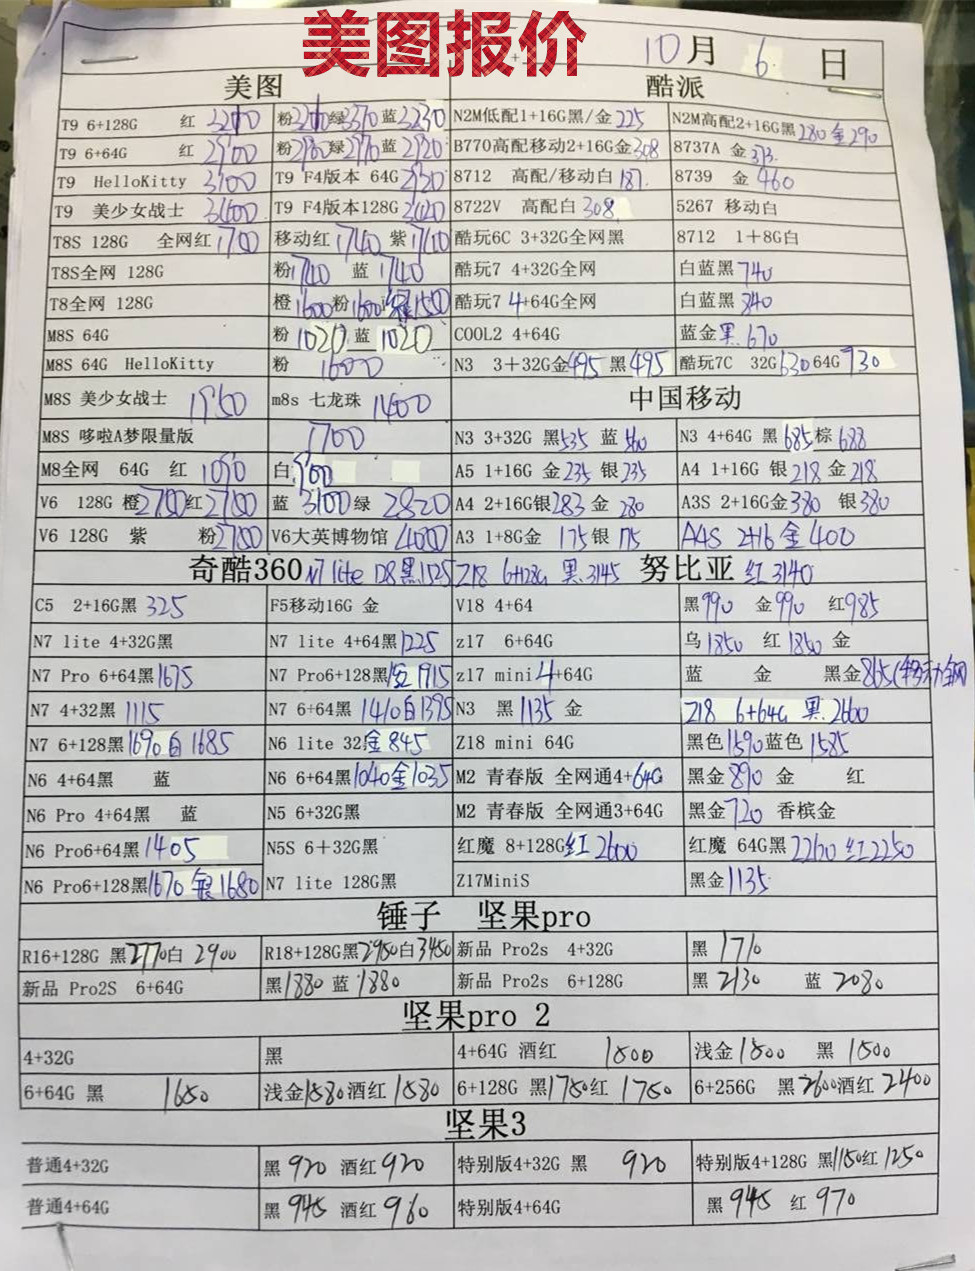 美图报价
10月 6 日
美图 酷派
T9 6+128G 红 粉 绿 蓝3230 N2M低配1+16G黑/金 225 N2M高配2+16G黑280 金290
T9 6+64G 红 2900 粉 绿 蓝2920 B770高配移动2+16G金308 8737A 金
T9 HelloKitty 3100 T9 F4版本 64G 8712 高配/移动白 187. 8739 金 460
T9 美少女战士 3400 T9 F4版本128G 8722V 高配白 308 5267 移动白
T8S 128G 全网红1700 移动红1740 紫1710 酷玩6C 3+32G全网黑 8712 1+8G白
T8S全网 128G 粉1710 蓝1740 酷玩7 4+32G全网 白蓝黑740
T8全网 128G 橙1600粉1600 1550 酷玩7 4+64G全网 白蓝黑
M8S 64G 粉1020 蓝1020 COOL2 4+64G 蓝金黑 670
M8S 64G HelloKitty 粉 1600 N3 3+32G金495 黑495 酷玩7C 32G630 64G730
M8S 美少女战士 1950 m8s 七龙珠 1400 中国移动
M8S 哆啦A梦限量版 1700 N3 3+32G 黑535 蓝 N3 4+64G 黑685棕 688
M8全网 64G 红 1090 白 A5 1+16G 金235 银235 A4 1+16G 银218金218
V6 128G 橙2700红2700 蓝 3100绿 2820 A4 2+16G银283 金 280 A3S 2+16G金380 银380
V6 128G 紫 粉2700 V6大英博物馆 4000 A3 1+8G金 175银 175 A4S 2+16 金400
奇酷360 N7 lite 128黑1525 Z18 6+128G 黑.3145 努比亚 红3140
C5 2+16G黑 325 F5移动16G 金 V18 4+64 黑990 金990 红985
N7 lite 4+32G黑 N7 lite 4+64黑1225 z17 6+64G 乌1850 红1850 金
N7 Pro 6+64黑1675 N7 Pro6+128黑 1915 z17 mini4+64G 蓝 金 黑金865(移动全网
N7 4+32黑 1115 N7 6+64黑 1410白1395 N3 黑1135 金 Z18 6+64G 黑.2600
N7 6+128黑1690白1685 N6 lite 32金845 Z18 mini 64G 黑色1590蓝色1585
N6 4+64黑 蓝 N6 6+64黑1040金1035 M2 青春版 全网通4+64G 黑金890 金 红
N6 Pro 4+64黑 蓝 N5 6+32G黑 M2 青春版 全网通3+64G 黑金720 香槟金
N6 Pro6+64黑1405 N5S 6+32G黑 红魔 8+128G红2600 红魔 64G黑2260红2250
N6 Pro6+128黑1670银1680 N7 lite 128G黑 Z17MiniS 黑金1135
锤子 坚果pro
R16+128G 黑2770白 2900 R18+128G黑2950白3450 新品 Pro2s 4+32G 黑 1710
新品 Pro2S 6+64G 黑1880 蓝1880 新品 Pro2s 6+128G 黑 2130 蓝 2080
坚果pro 2
4+32G 黑 4+64G 酒红 1500 浅金1500 黑 1500
6+64G 黑 1650 浅金1580酒红1580 6+128G 黑1750红 1750 6+256G 黑2600酒红2400
坚果3
普通4+32G 黑920 酒红920 特别版4+32G 黑 920 特别版4+128G 黑1150红1250
普通4+64G 黑945 酒红960 特别版4+64G 黑945 红 970